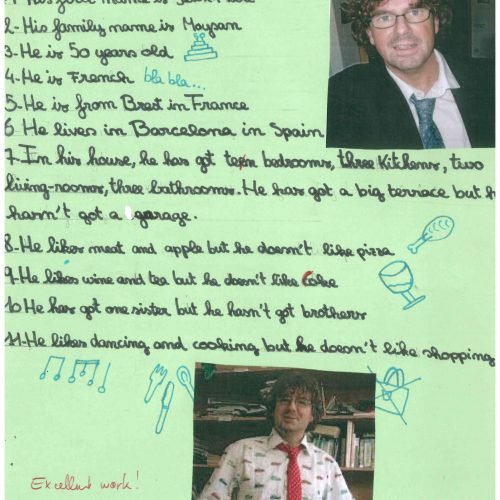 name is
2- His family name is Moysan
3- He is 50 years old
4- He is French bla bla...
5- He is from Brest in France
6 He lives in Barcelona in Spain
7- In his house, he has got ten bedrooms, three kitchens, two
living-rooms, three bathrooms. He has got a big terrace but h
hasn't got a garage.
8- He likes meat and apple but he doesn't like pizza
9- He likes wine and tea but he doesn't like Coke
10 He has got one sister but he hasn't got brothers
11- He likes dancing and cooking but he doesn't like shopping
Excellent work!